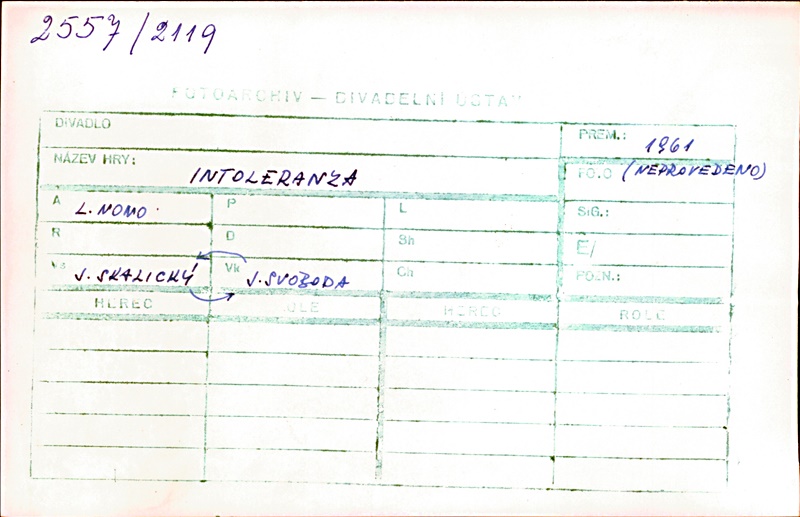 2557/2119
FOTOARCHIV — DIVADELNÍ ÚSTAV
DIVADLO
PREM.: 1961
NÁZEV HRY: INTOLERANZA
FO.O (NEPROVEDENO)
A L. NONO P L SIG.:
R D Sh E/
Vs J. SKALICKÝ Vk J. SVOBODA Ch POZN.:
HEREC ROLE HEREC ROLE